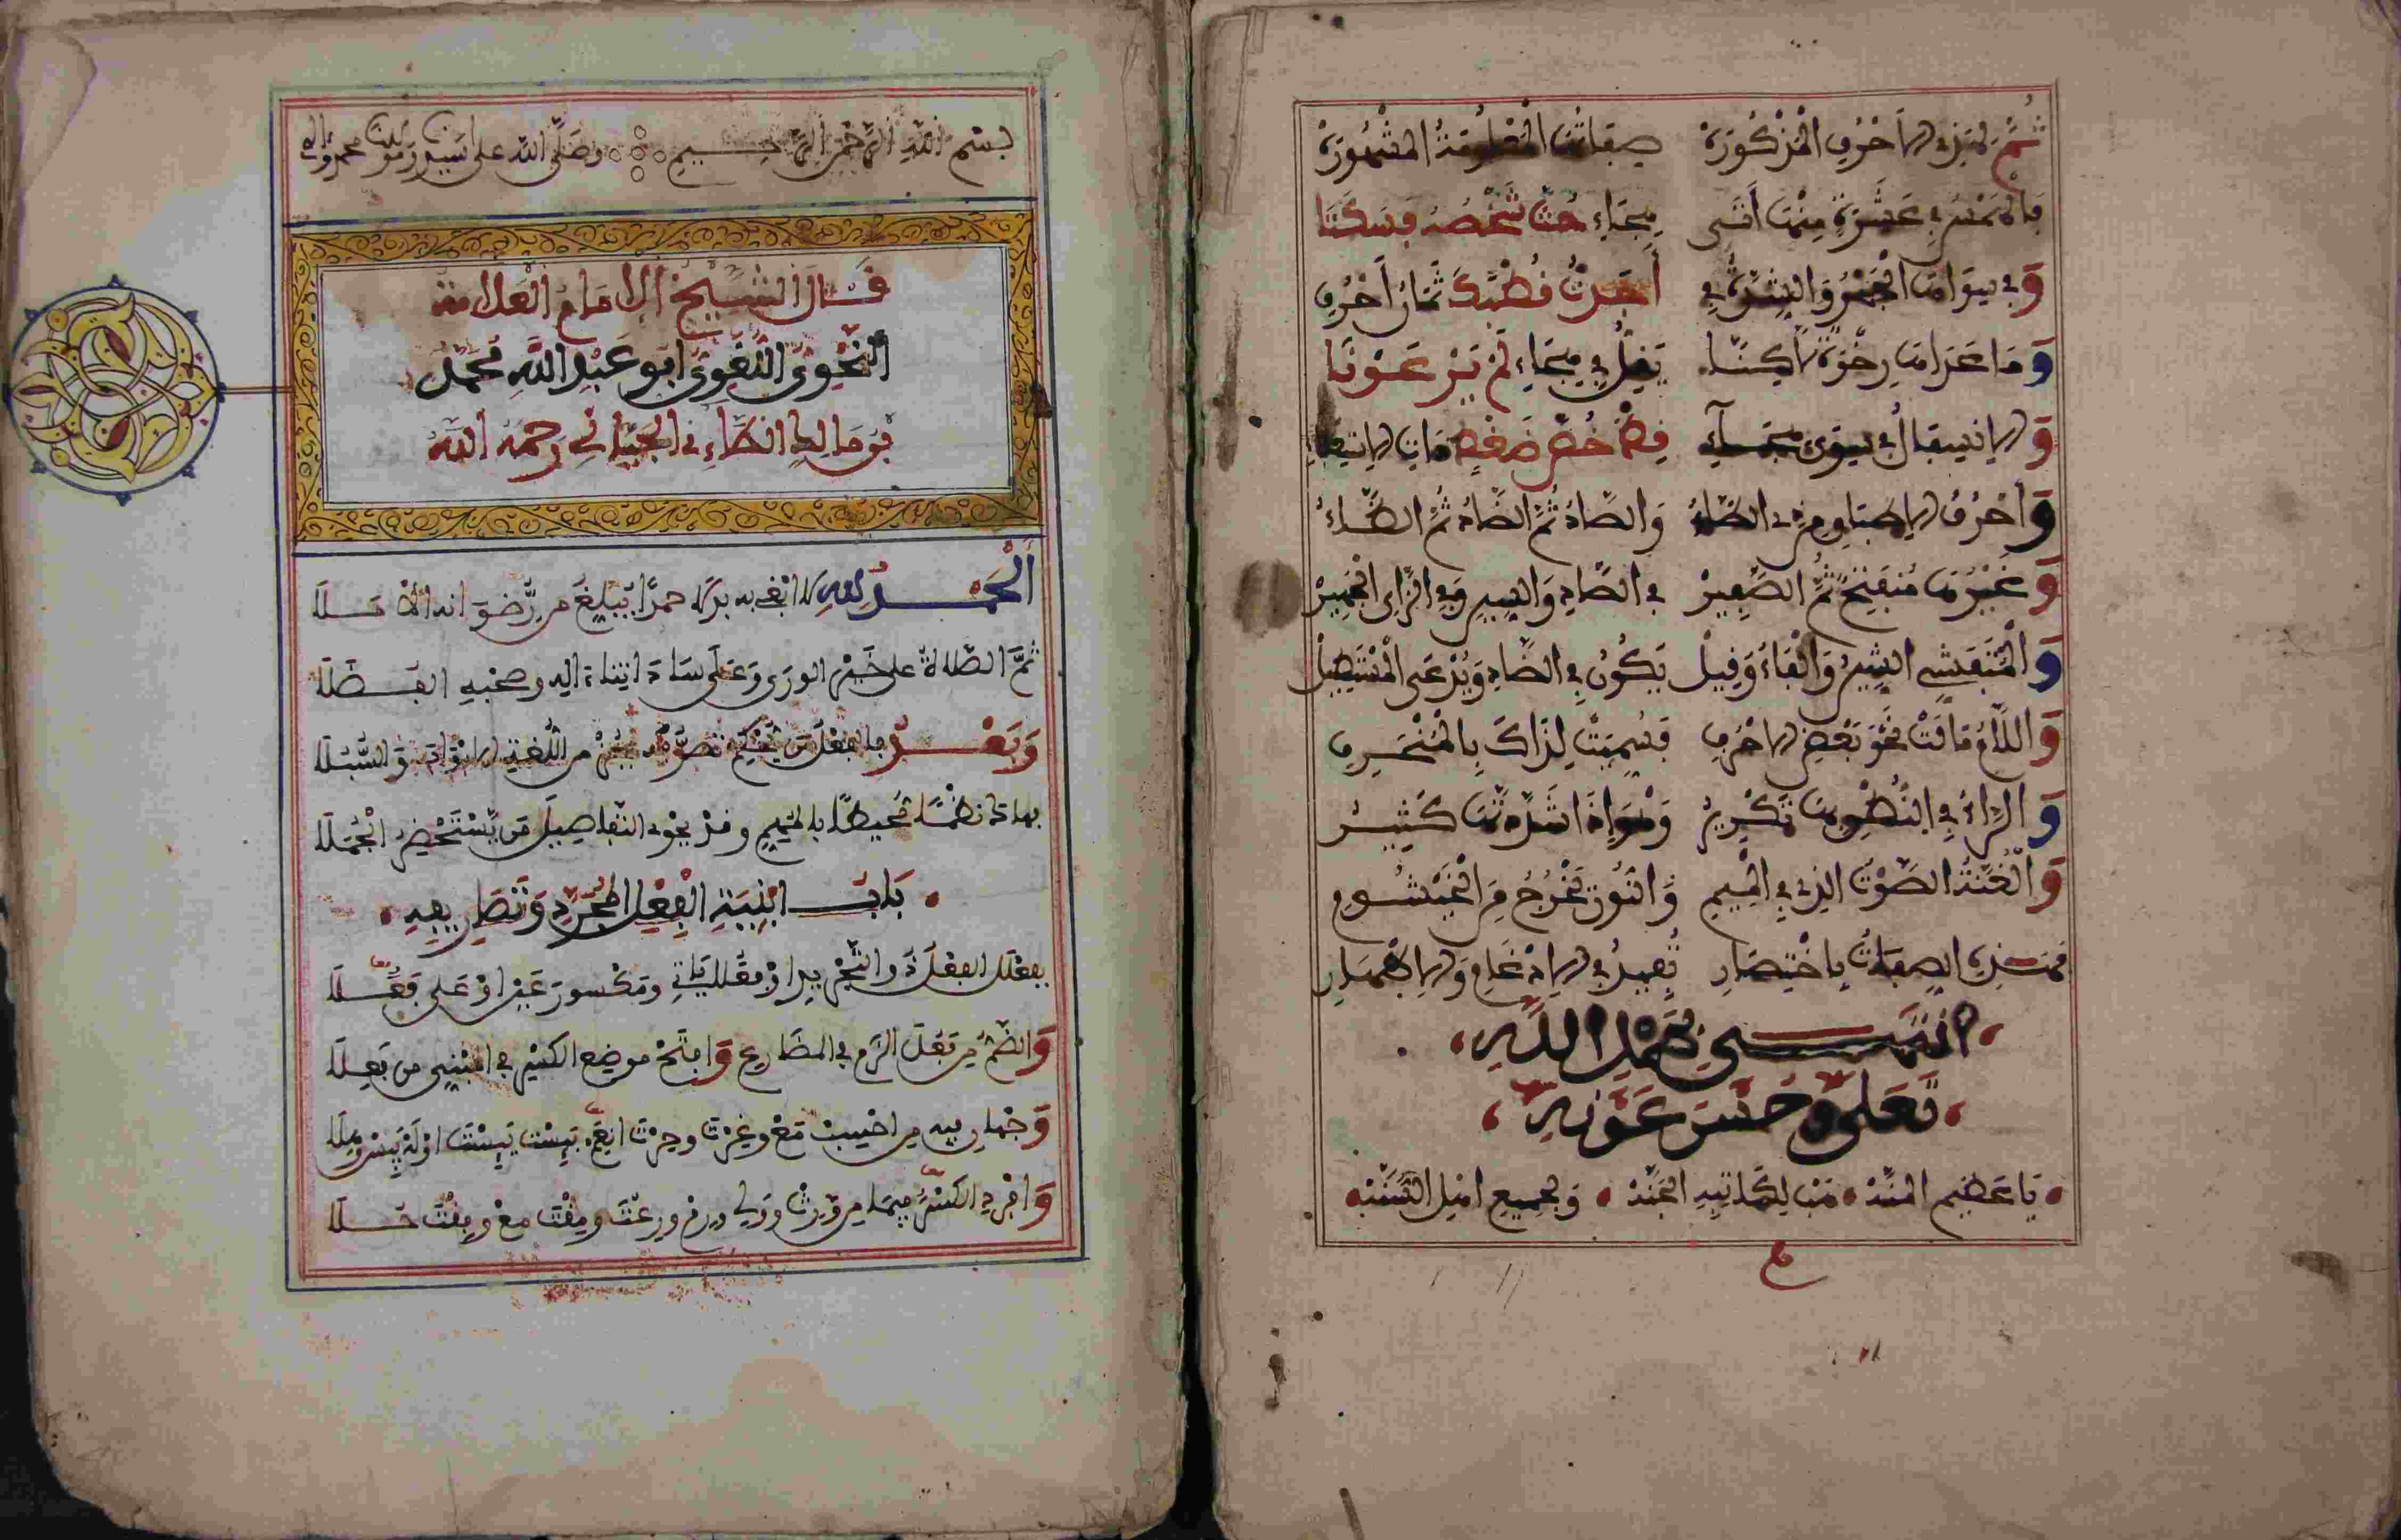 ثُمَّ لهذه الأحرف المذكورة صفاتها المعلومة المشهورة
فالهمس في عشرة منها أتى هجاء حث شخصه فسكتا
وفي سواها الجهر والشدة في أجدت قطبك ثمان أحرف
وما عداها رخوة لاكنا يقل في هجاء لم يرعونا
والانسفال في سوى هجاء قظ خص ضغط هاذ الاستعلاء
وأحرف الإطباق هي الطاء والصاد ثم الضاد ثم الظاء
وغيرها منفتح ثم الصفير في الصاد والسين وفي الزاي الجهير
والمتفشي الشين والفاء وقيل يكون في الضاد ويدعى المستطيل
واللام مالت نحو بعض الأحرف فسميت لذاك بالمنحرف
والراء في النطق بها تكرير وهو إذا شددتها كثير
والغنة الصوت الذي في الميم والنون تخرج من الخيشوم
فهذه الصفات باختصار تفيد في الإدغام والإظهار
انتهى بحمد الله
تعلى وحسن عونه
يا عظيم المنه هب لكاتبه الجنه ولجميع أهل السنه
بسم الله الرحمن الرحيم وصلى الله على سيدنا ومولانا محمد وءاله
قال الشيخ الإمام العلامة
النحوي اللغوي أبو عبد الله محمد
بن مالك الطاءي الجياني رحمه الله
الحمد لله لا أبغي به بدلا حمدا يبلغ من رضوانه الأملا
ثم الصلاة على خير الورى وعلى سادتنا ءاله وصحبه الفضلا
وبعد فالفعل من يحكم تصرفه يحز من اللغة الأبواب والسبلا
فهاك نظما محيطا بالمهم وقد يحوي التفاصيل من يستحضر الجملا
باب أبنية الفعل المجرد وتصاريفه
بفعلل الفعل ذو التجريد أو فعلا ياتي ومكسور عين أو على فعلا
والضم من فعل الزم في المضارع وافتح موضع الكسر في المبني من فعلا
وجهان فيه من احسب مع وغرت وحرت انعم بئست يئست اوله يبس وهلا
وافرد الكسر فيما من ورث وولي ورم ورعت ومقت مع وفقت حلا